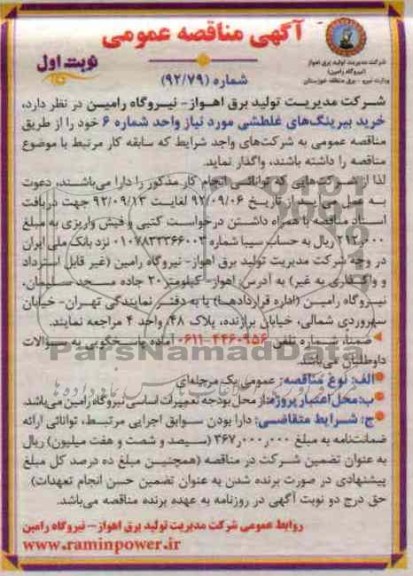 آگهی مناقصه عمومی
شرکت مدیریت تولید برق اهواز
(نیروگاه رامین)
وزارت نیرو - برق منطقه خوزستان
نوبت اول
شماره (۹۲/۷۹)
شرکت مدیریت تولید برق اهواز- نیروگاه رامین در نظر دارد،
خرید بیرینگ‌های غلطشی مورد نیاز واحد شماره ۶ خود را از طریق
مناقصه عمومی به شرکت‌های واجد شرایط که سابقه کار مرتبط با موضوع
مناقصه را داشته باشند، واگذار نماید.
لذا از شرکت‌هایی که توانائی انجام کار مذکور را دارا می‌باشند، دعوت
به عمل می‌آید از تاریخ ۹۲/۰۹/۰۶ لغایت ۹۲/۰۹/۱۳ جهت دریافت
اسناد مناقصه با همراه داشتن درخواست کتبی و فیش واریزی به مبلغ
۲۱۲,۰۰۰ ریال به حساب سیبا شماره ۰۱۰۷۸۳۳۳۶۶۰۰۲ نزد بانک ملی ایران
در وجه شرکت مدیریت تولید برق اهواز- نیروگاه رامین (غیر قابل استرداد
و واگذاری به غیر) به آدرس: اهواز- کیلومتر ۲۰ جاده مسجد سلیمان،
نیروگاه رامین (اداره قراردادها) یا به دفتر نمایندگی تهران- خیابان
سهروردی شمالی، خیابان برازنده، پلاک ۴۸، واحد ۴ مراجعه نمایند.
ضمناً، شماره تلفن ۴۴۶۰۹۵۶-۰۶۱۱ آماده پاسخگویی به سوالات
داوطلبان می‌باشد.
الف: نوع مناقصه: عمومی یک مرحله‌ای
ب: محل اعتبار پروژه: از محل بودجه تعمیرات اساسی نیروگاه رامین می‌باشد.
ج: شرایط متقاضی: دارا بودن سوابق اجرایی مرتبط، توانائی ارائه
ضمانت‌نامه به مبلغ ۳۶۷,۰۰۰,۰۰۰ (سیصد و شصت و هفت میلیون) ریال
به عنوان تضمین شرکت در مناقصه (همچنین مبلغ ده درصد کل مبلغ
پیشنهادی در صورت برنده شدن به عنوان تضمین حسن انجام تعهدات)
حق درج دو نوبت آگهی در روزنامه به عهده برنده مناقصه می‌باشد.
روابط عمومی شرکت مدیریت تولید برق اهواز- نیروگاه رامین
www.raminpower.ir
ParsNamadData